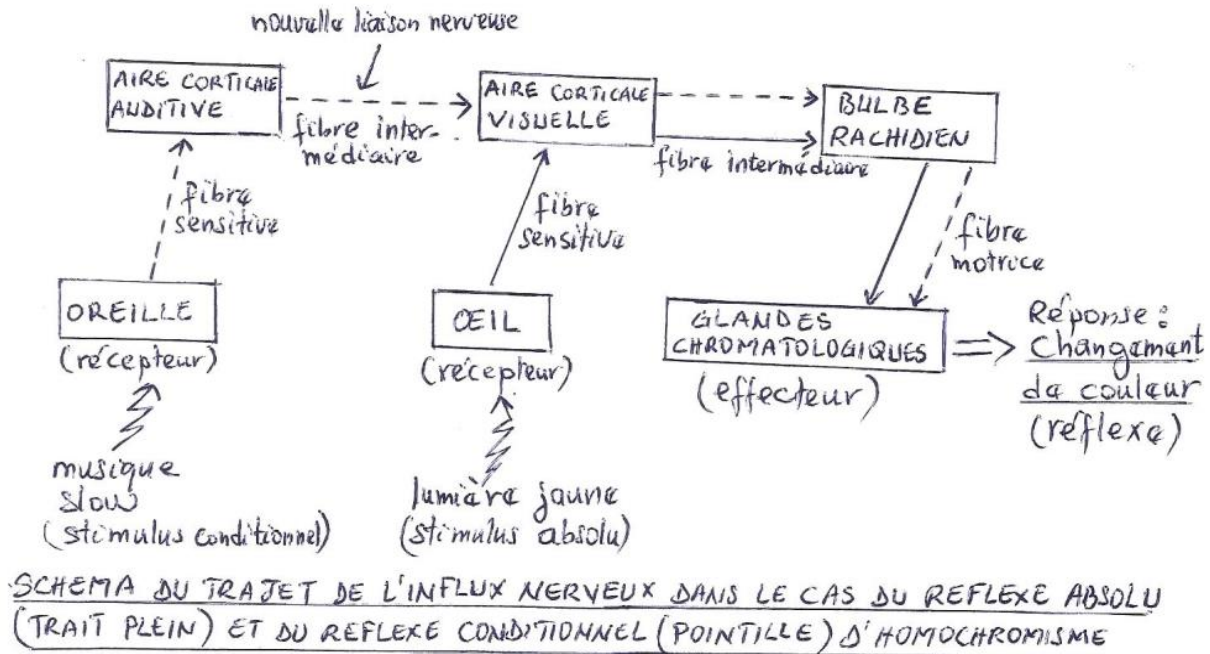 nouvelle liaison nerveuse
AIRE CORTICALE
AUDITIVE
fibre inter-
médiaire
AIRE CORTICALE
VISUELLE
fibre intermédiaire
BULBE
RACHIDIEN
fibre
sensitive
fibre
sensitive
fibre
motrice
OREILLE
(récepteur)
ŒIL
(récepteur)
GLANDES
CHROMATOLOGIQUES
(effecteur)
Réponse :
Changement
de couleur
(réflexe)
musique
slow
(stimulus conditionnel)
lumière jaune
(stimulus absolu)
SCHEMA DU TRAJET DE L'INFLUX NERVEUX DANS LE CAS DU REFLEXE ABSOLU
(TRAIT PLEIN) ET DU REFLEXE CONDITIONNEL (POINTILLE) D'HOMOCHROMISME